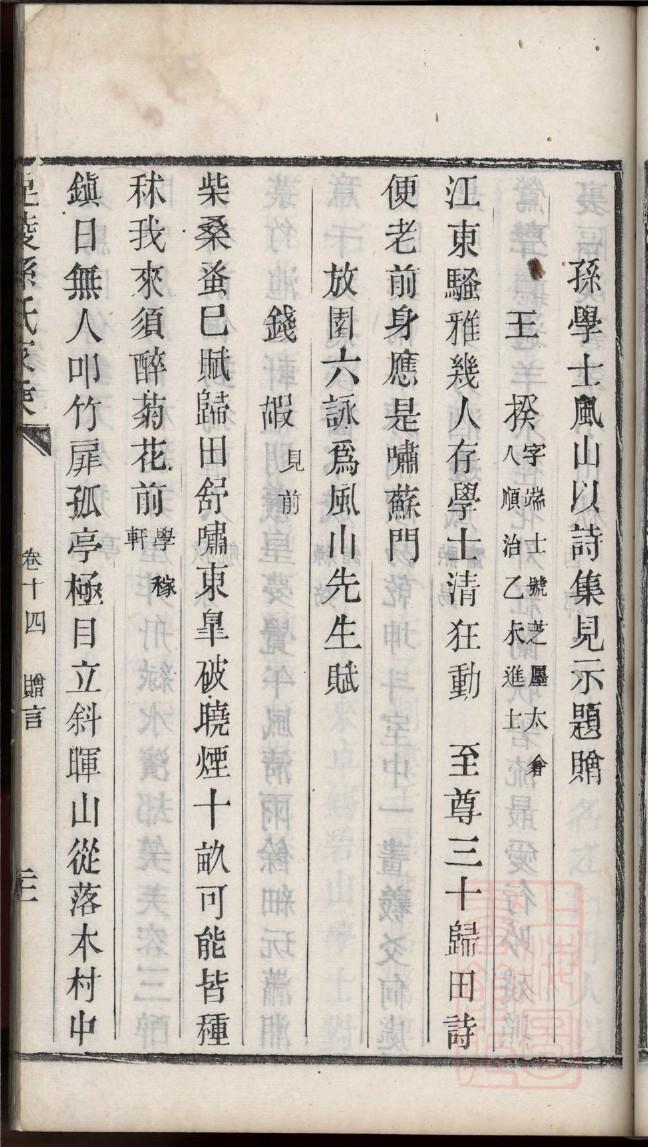 孫學士風山以詩集見示題贈
王揆字端士號芝廛太倉人順治乙未進士
江東騷雅幾人存學士清狂動　至尊三十歸田詩
便老前身應是嘯蘇門
放園六詠為風山先生賦
錢嘏見前
柴桑蚤已賦歸田舒嘯東臯破曉煙十畝可能皆種
秫我來須醉菊花前學稼軒
鎮日無人叩竹扉孤亭極目立斜暉山從落木村中
毘陵孫氏家乘
卷十四　贈言